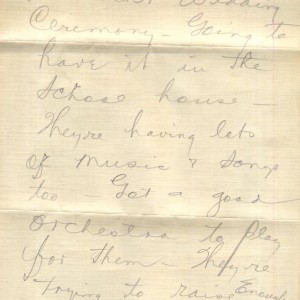 Wedding
Ceremony - Going to
have it in the
School house -
They're having lots
of Music & Songs
too - Got a good
Orchestra to play
for them - They're
trying to raise Enough